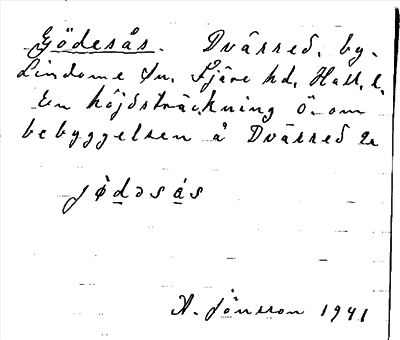 Gödesås. Dvärred, by.
Lindome sn. Fjäre hd. Hall. l.
En höjdsträckning ö. om
bebyggelsen å Dvärred 2a
jödəsås
A. Jönsson 1941